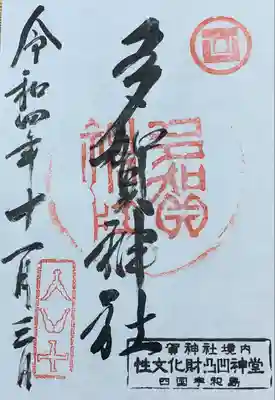 多賀神社
令和四年十一月三日
多賀神社境内
性文化財凸凹神堂
四国宇和島